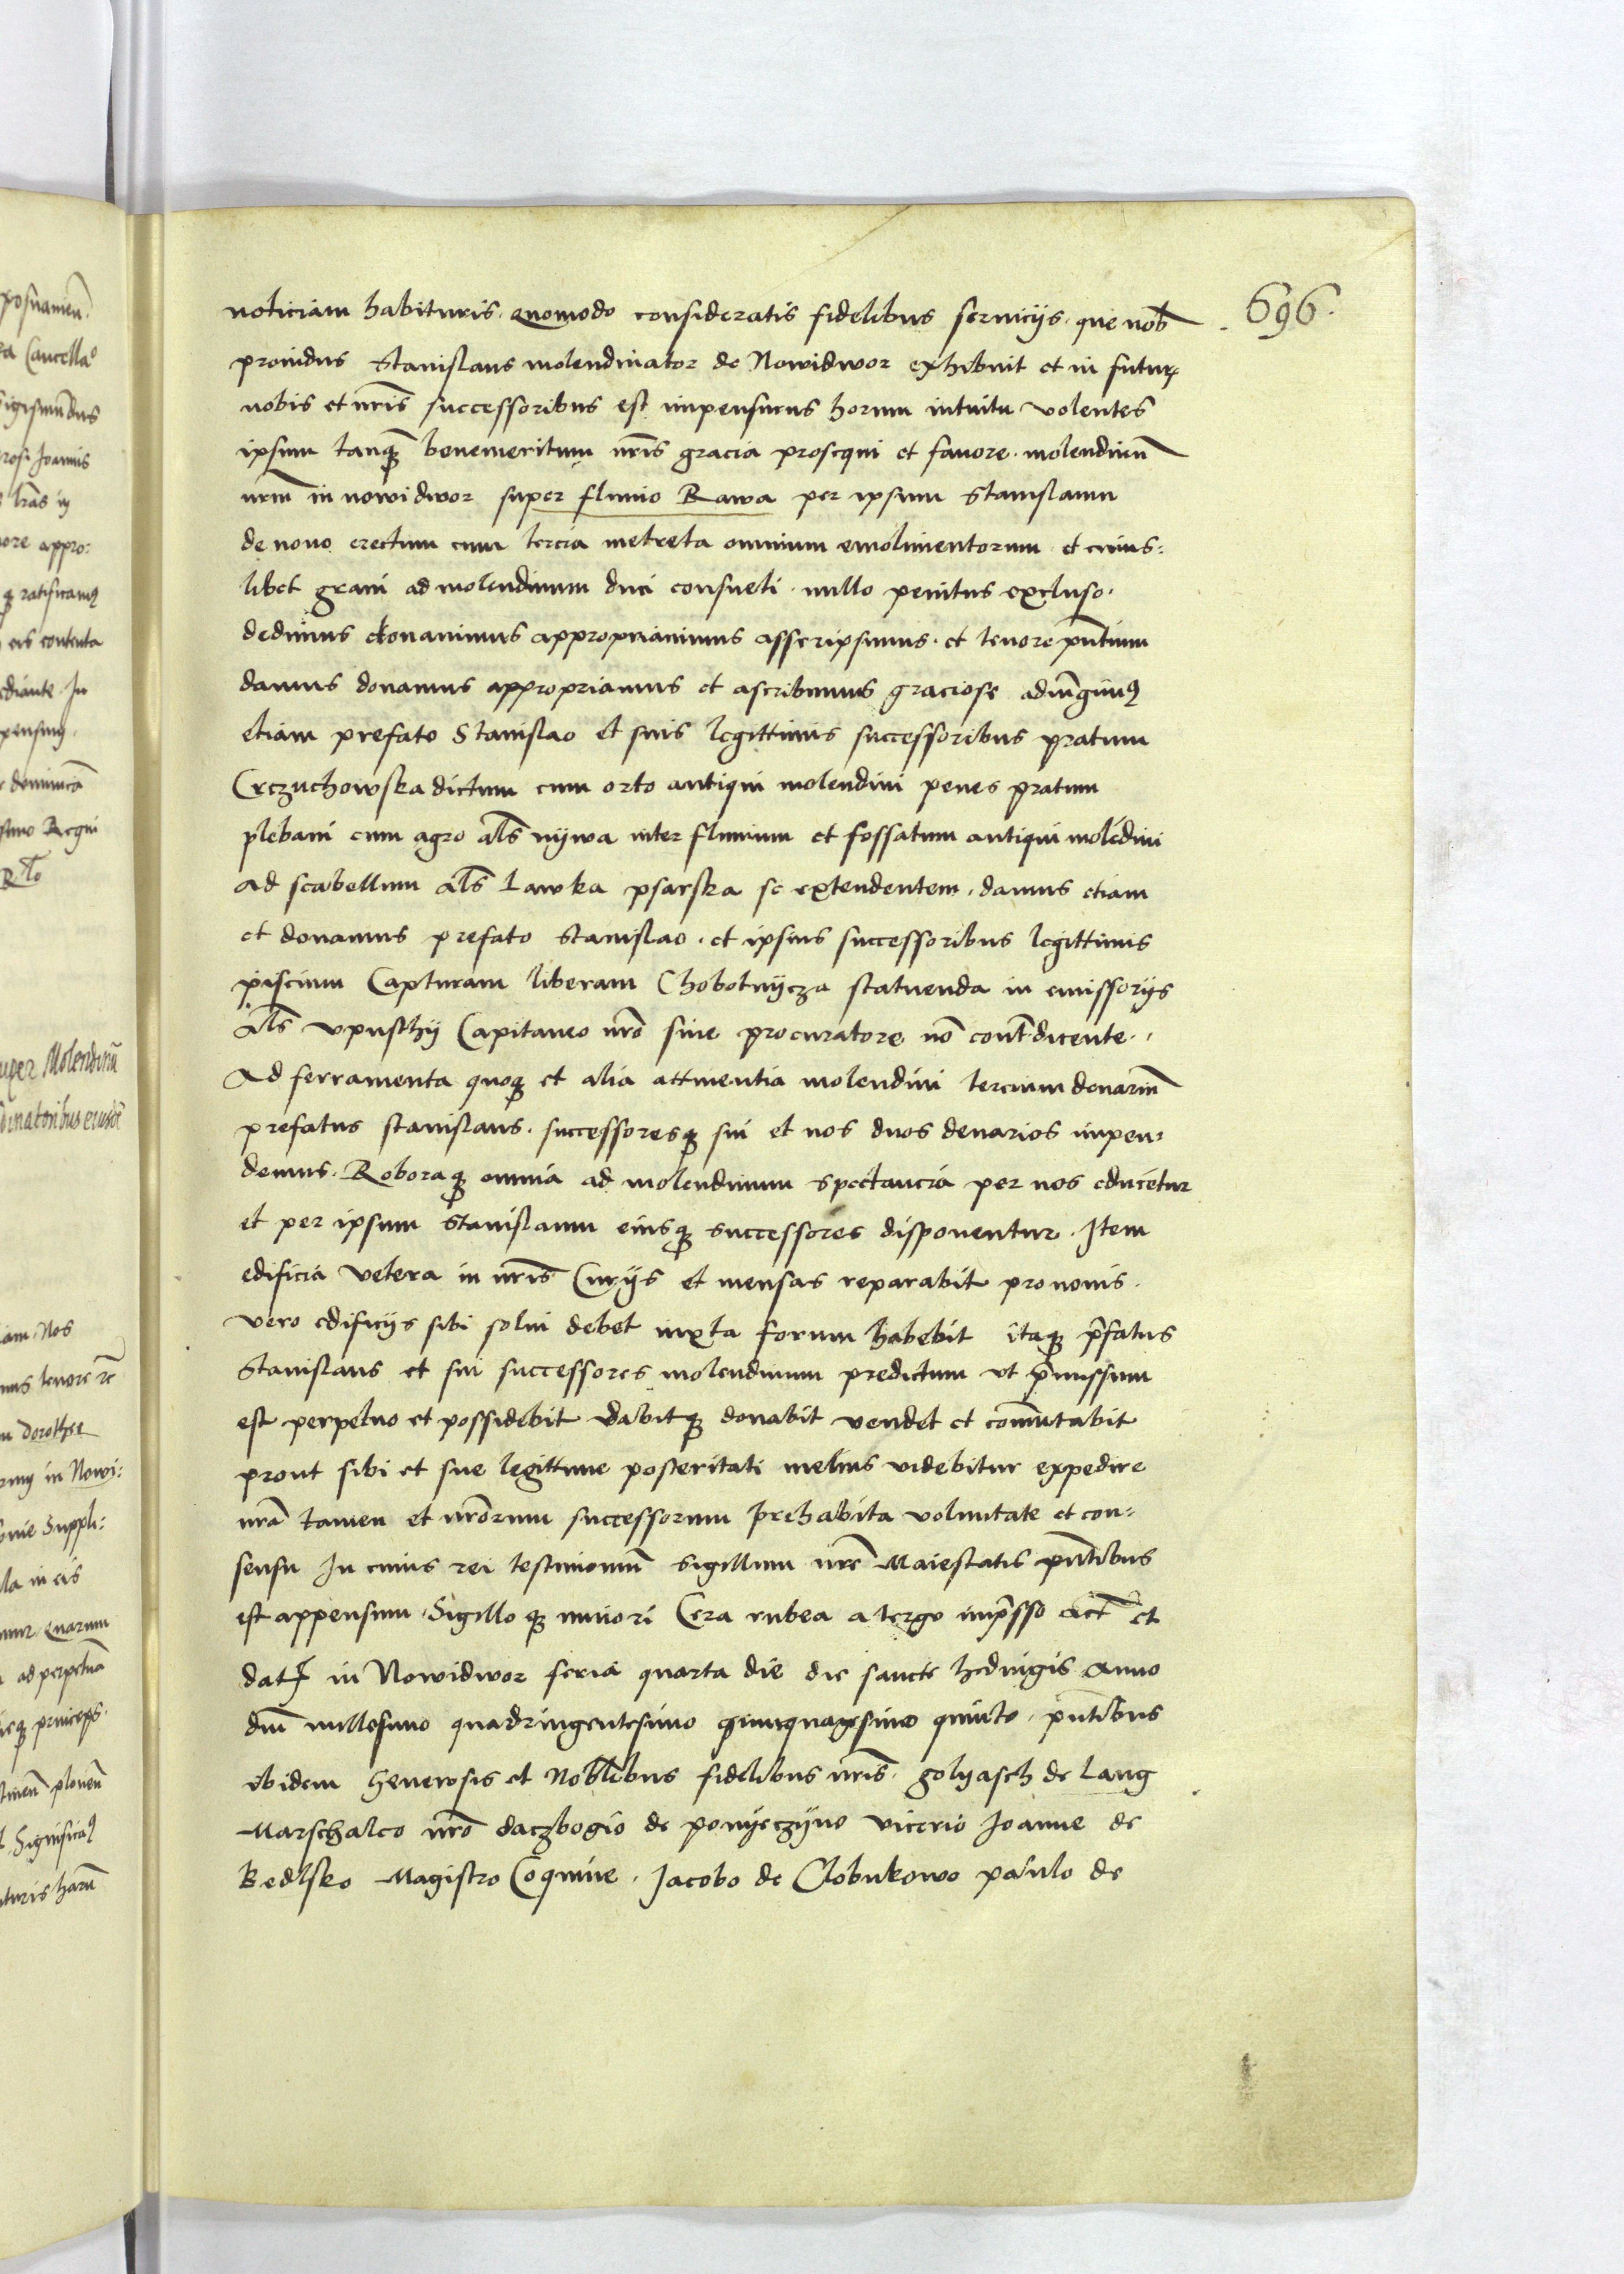 696.
noticiam habituris. quomodo consideratis fidelibus seruicijs. que nob̃
prouidus Stanislaus molendinator de Nowidwor exhibuit et in futuꝝ
nobis et nr̃is successoribus est impensurus horum intuitu volentes
ipsum tanq̃ benemeritum nr̃is gracia prosequi et fauore. molendinũ
nr̃m in nowidwor super fluuio Rawa per ipsum Stanislaum
de nouo erectum cum tercia metreta omnium emolimentorum et cuius:
libet grani ad molendinum duci consueti. nullo penitus excluso.
dedimus donauimus appropriauimus asscripsimus. et tenore pñtium
damus donamus appropriamus et ascribimus graciose adiũgimꝰ
etiam prefato Stanislao et suis legittimis successoribus pratum
Crczuchowska dictum cum orto antiqui molendini penes pratum
plebani cum agro als̃ nywa inter fluuium et fossatum antiqui molẽdini
ad scabellum als̃ Lawka psarska se extendentem. damus etiam
et donamus prefato Stanislao. et ipsius successoribus legittimis
piscium Capturam liberam Chobotnycza statuenda in emissorijs
als̃ vpusthy Capitaneo nr̃o siue procuratore nõ cont̃dicente.
Ad ferramenta quoqꝫ et alia attinentia molendini tercium denariũ
prefatus stanislaus. successoresqꝫ sui et nos duos denarios impen:
demus. Roboraqꝫ omnia ad molendinum spectancia per nos educetur
et per ipsum Stanislaum eiusqꝫ successores disponentur. Item
edificia vetera in nr̃is Curijs et mensas reparabit pro nouis.
vero edificijs sibi solui debet iuxta forum habebit itaqꝫ p̃fatus
Stanislaus et sui successores molendinum predictum vt p̃missum
est perpetuo et possidebit dabitqꝫ donabit vendet et com̃utabit
prout sibi et sue legittime posteritati melius videbitur expedire
nr̃a tamen et nr̃orum successorum prehabita voluntate et con:
sensu In cuius rei testimoniũ sigillum nr̃e Maiestatis pñtibus
est appensum. Sigillo qꝫ minori Cera rubea a tergo imp̃sso Act̃ et
dat̃ in Nowidwor feria quarta die die sancte hedwigis Anno
dñi millesimo quadringentesimo quinquagesimo quinto. pñtibus
ibidem Generosis et Nobl̃ibus fidelibus nr̃is. golyasch de Lang
Marschalco nr̃o daczbogio de ponyeczyno vicerio Joanne de
Bedlsko Magistro Coquine. Jacobo de Clobukowo paulo de